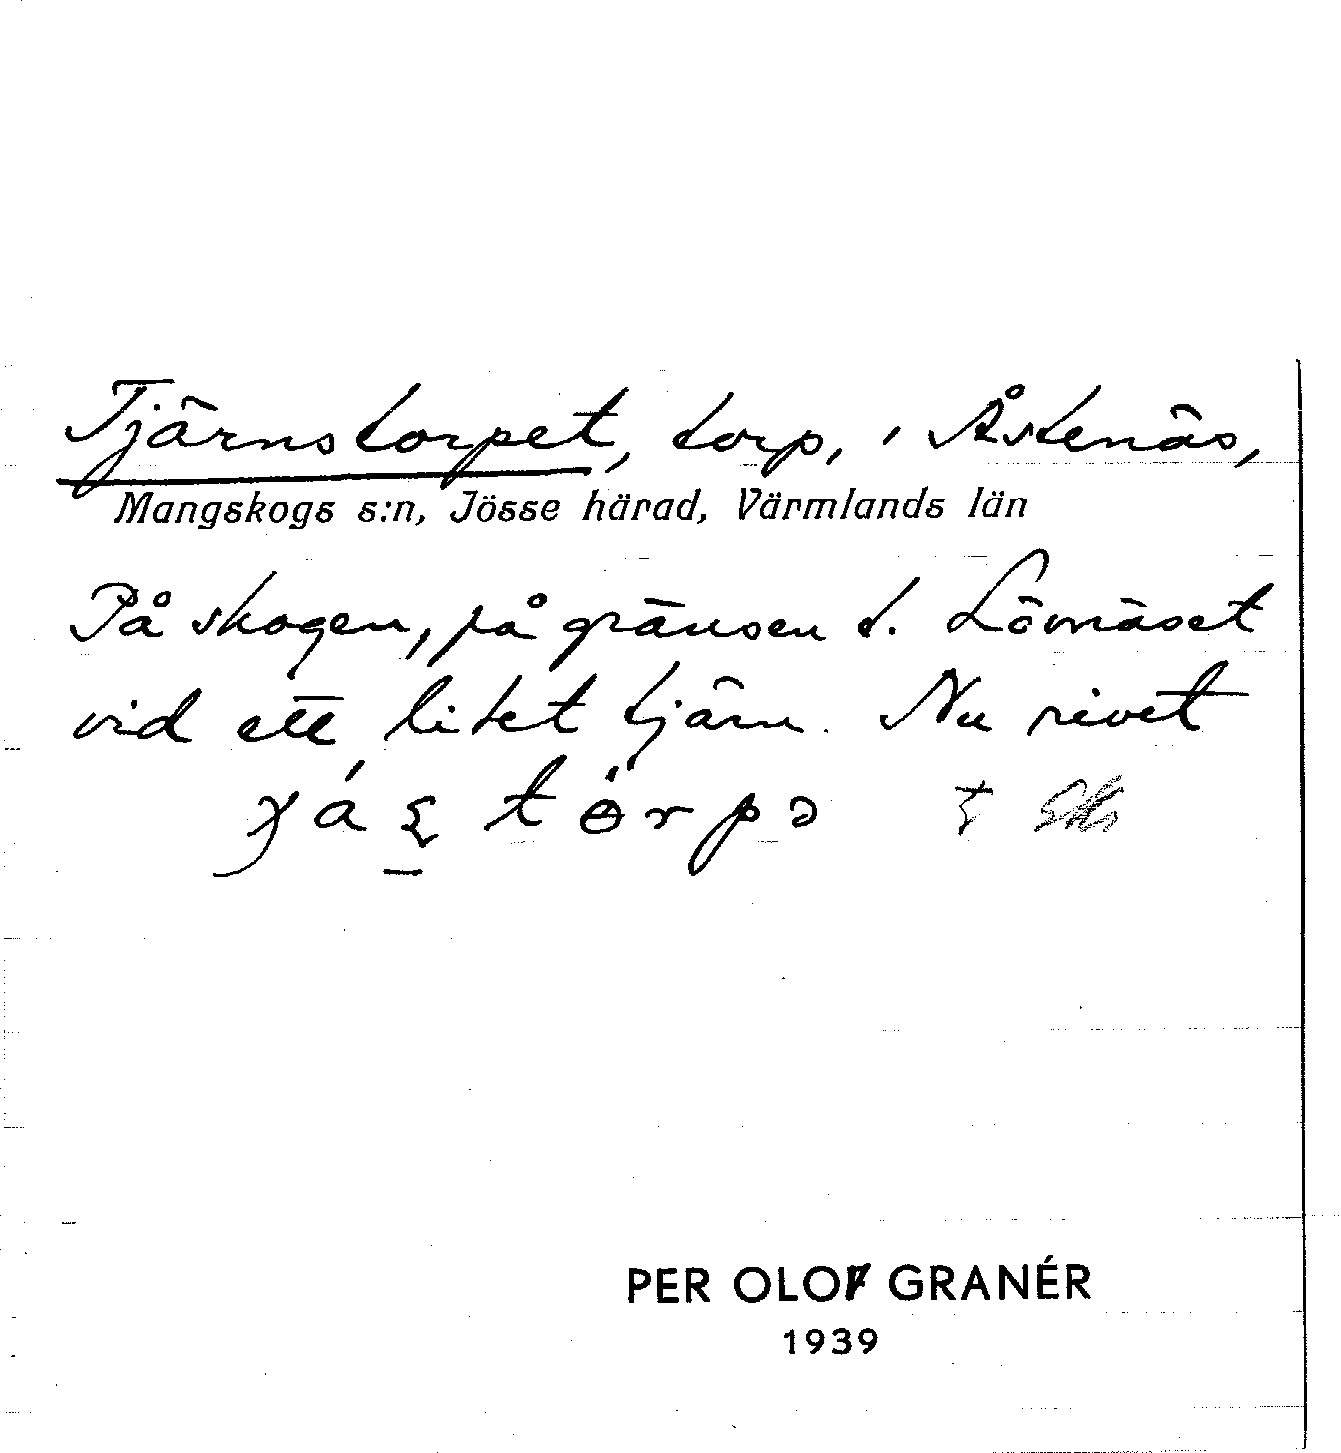 Tjärnstorpet, torp, i Åstenäs,
Mangskogs s:n, Jösse härad, Värmlands län
På skogen, på gränsen t. Lövnäset
vid ett litet tjärn. Nu rivet
PER OLOF GRANÉR
1939